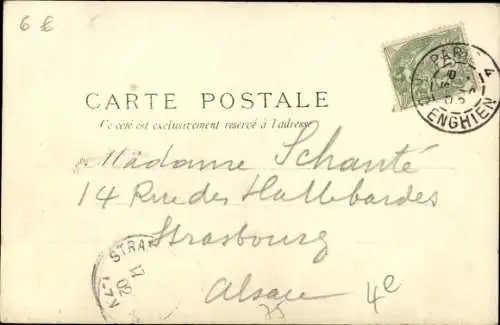 6 €
PARIS
ENGHIEN
CARTE POSTALE
Ce côté est exclusivement reservé à l'adresse
Madame Schanté
14 Rue des Hallebardes
Strasbourg
Alsace
4e
STRA
17
02